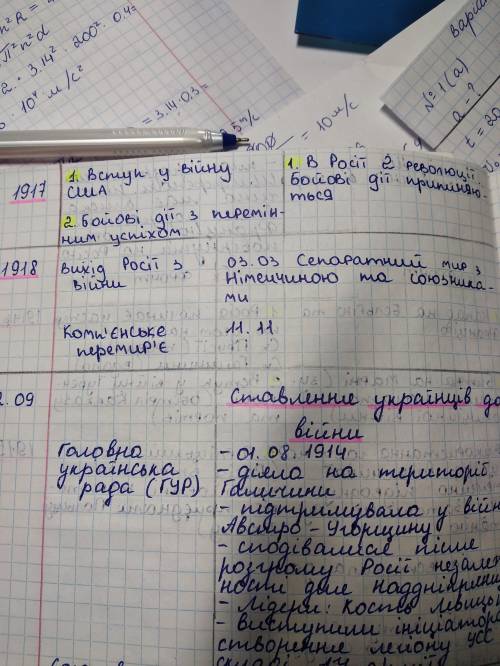 n²R =
π²n²d
2 · 3.14² · 200² · 0.4 =
10⁴ м/с²
= 3.14·0.3 =
= 10 м/с
№ 1 (а)
а - ?
t = 20
1917
1. Вступ у війну
США
2. Бойові дії з перемін-
ним успіхом
1. В Росії 2 революції
Бойові дії припиня-
ться
1918
Вихід Росії з
війни
03.03 Сепаратний мир з
Німеччиною та союзника-
ми
Комп'єнське
перемир'є
11.11.
2.09
Ставлення українців до
війни
Головна
українська
рада (ГУР)
- 01.08.1914
- діяла на території
Галичини
- підтримувала у війн
Австро-Угорщину
- сподівалися після
розгрому Росії незале
ності для наддніпрян
- Лідери: Кость Левиц
- виступили ініціатора
створення легіону УСС